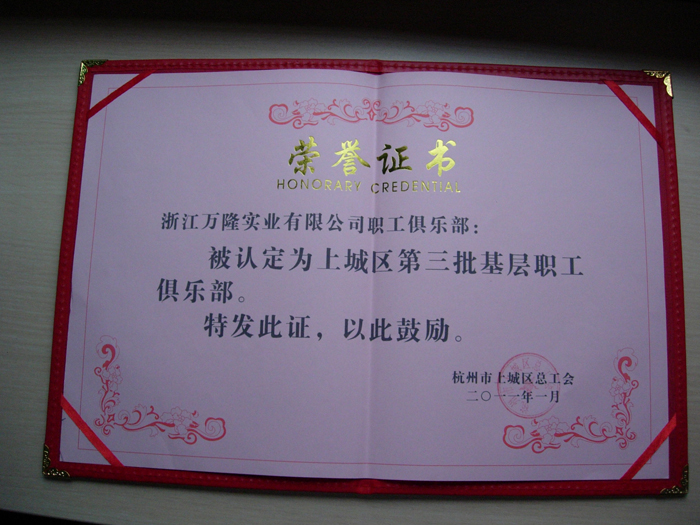 荣誉证书
HONORARY CREDENTIAL
浙江万隆实业有限公司职工俱乐部：
被认定为上城区第三批基层职工
俱乐部。
特发此证，以此鼓励。
杭州市上城区总工会
二〇一一年一月